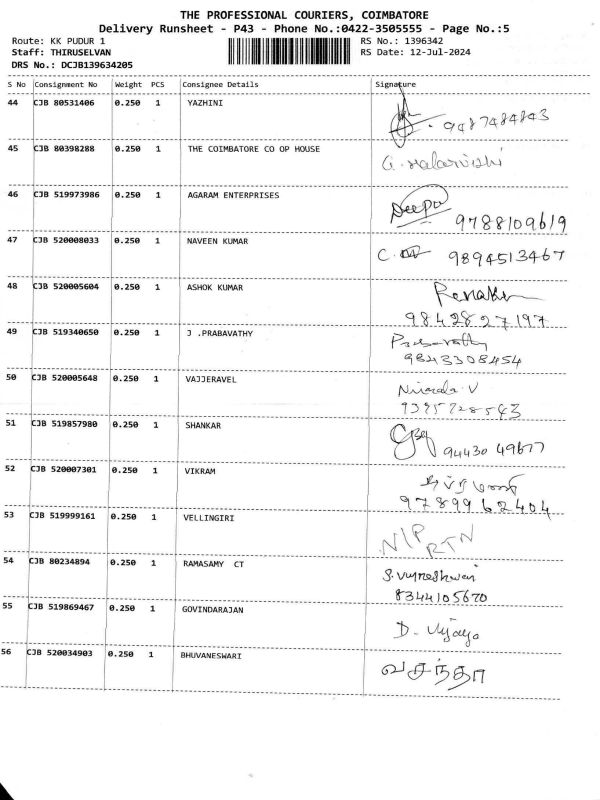 THE PROFESSIONAL COURIERS, COIMBATORE
Delivery Runsheet - P43 - Phone No.:0422-3505555 - Page No.:5
Route: KK PUDUR 1 RS No.: 1396342
Staff: THIRUSELVAN RS Date: 12-Jul-2024
DRS No.: DCJB139634205
S No Consignment No Weight PCS Consignee Details Signature
44 CJB 80531406 0.250 1 YAZHINI
9487484843
45 CJB 80398288 0.250 1 THE COIMBATORE CO OP HOUSE
46 CJB 519973986 0.250 1 AGARAM ENTERPRISES Deepa
9788109619
47 CJB 520008033 0.250 1 NAVEEN KUMAR C. 9894513467
48 CJB 520005604 0.250 1 ASHOK KUMAR
9842827197
49 CJB 519340650 0.250 1 J .PRABAVATHY Prabavathy
9843308454
50 CJB 520005648 0.250 1 VAJJERAVEL
51 CJB 519857980 0.250 1 SHANKAR
94430 49677
52 CJB 520007301 0.250 1 VIKRAM
9789962404
53 CJB 519999161 0.250 1 VELLINGIRI N/P
RTN
54 CJB 80234894 0.250 1 RAMASAMY CT
8344105670
55 CJB 519869467 0.250 1 GOVINDARAJAN
D. Vijaya
56 CJB 520034903 0.250 1 BHUVANESWARI
வசந்தா